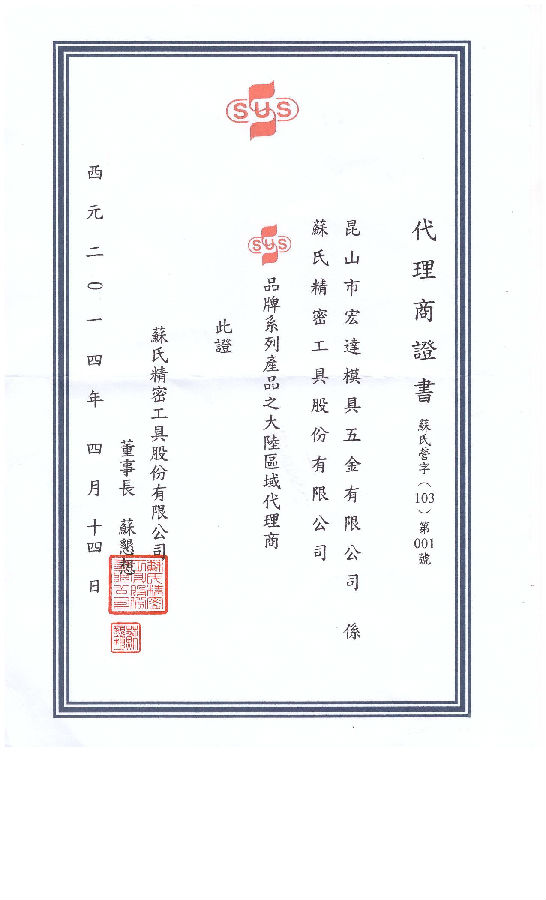 SUS
代理商證書 蘇氏營字(103)第001號
昆山市宏達模具五金有限公司 係
蘇氏精密工具股份有限公司
SUS 品牌系列產品之大陸區域代理商
此證
蘇氏精密工具股份有限公司
董事長 蘇懇
西元二〇一四年四月十四日